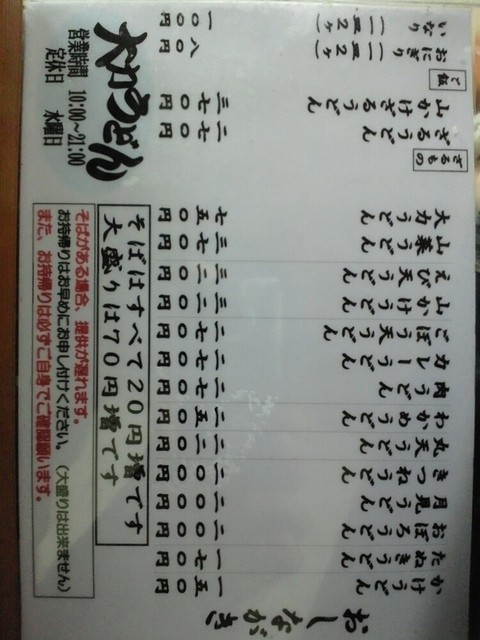 おしながき
かけうどん 一五〇円
たぬきうどん 一七〇円
おぼろうどん 二〇〇円
月見うどん 二〇〇円
きつねうどん 二〇〇円
丸天うどん 二二〇円
わかめうどん 二五〇円
肉うどん 二七〇円
カレーうどん 二七〇円
ごぼう天うどん 二七〇円
山かけうどん 三二〇円
えび天うどん 三二〇円
山菜うどん 三七〇円
大力うどん 七五〇円
ざるもの
ざるうどん 二七〇円
山かけざるうどん 三七〇円
ご飯
おにぎり(一皿2ヶ) 八〇円
いなり(一皿2ヶ) 一〇〇円
そばはすべて20円増です
大盛りは70円増です
そばがある場合、提供が遅れます。
お持帰りはお早めにお申し付けください。(大盛りは出来ません)
また、お持帰りは必ずご自身でご確認願います。
大力うどん
営業時間 10:00～21:00
定休日 水曜日